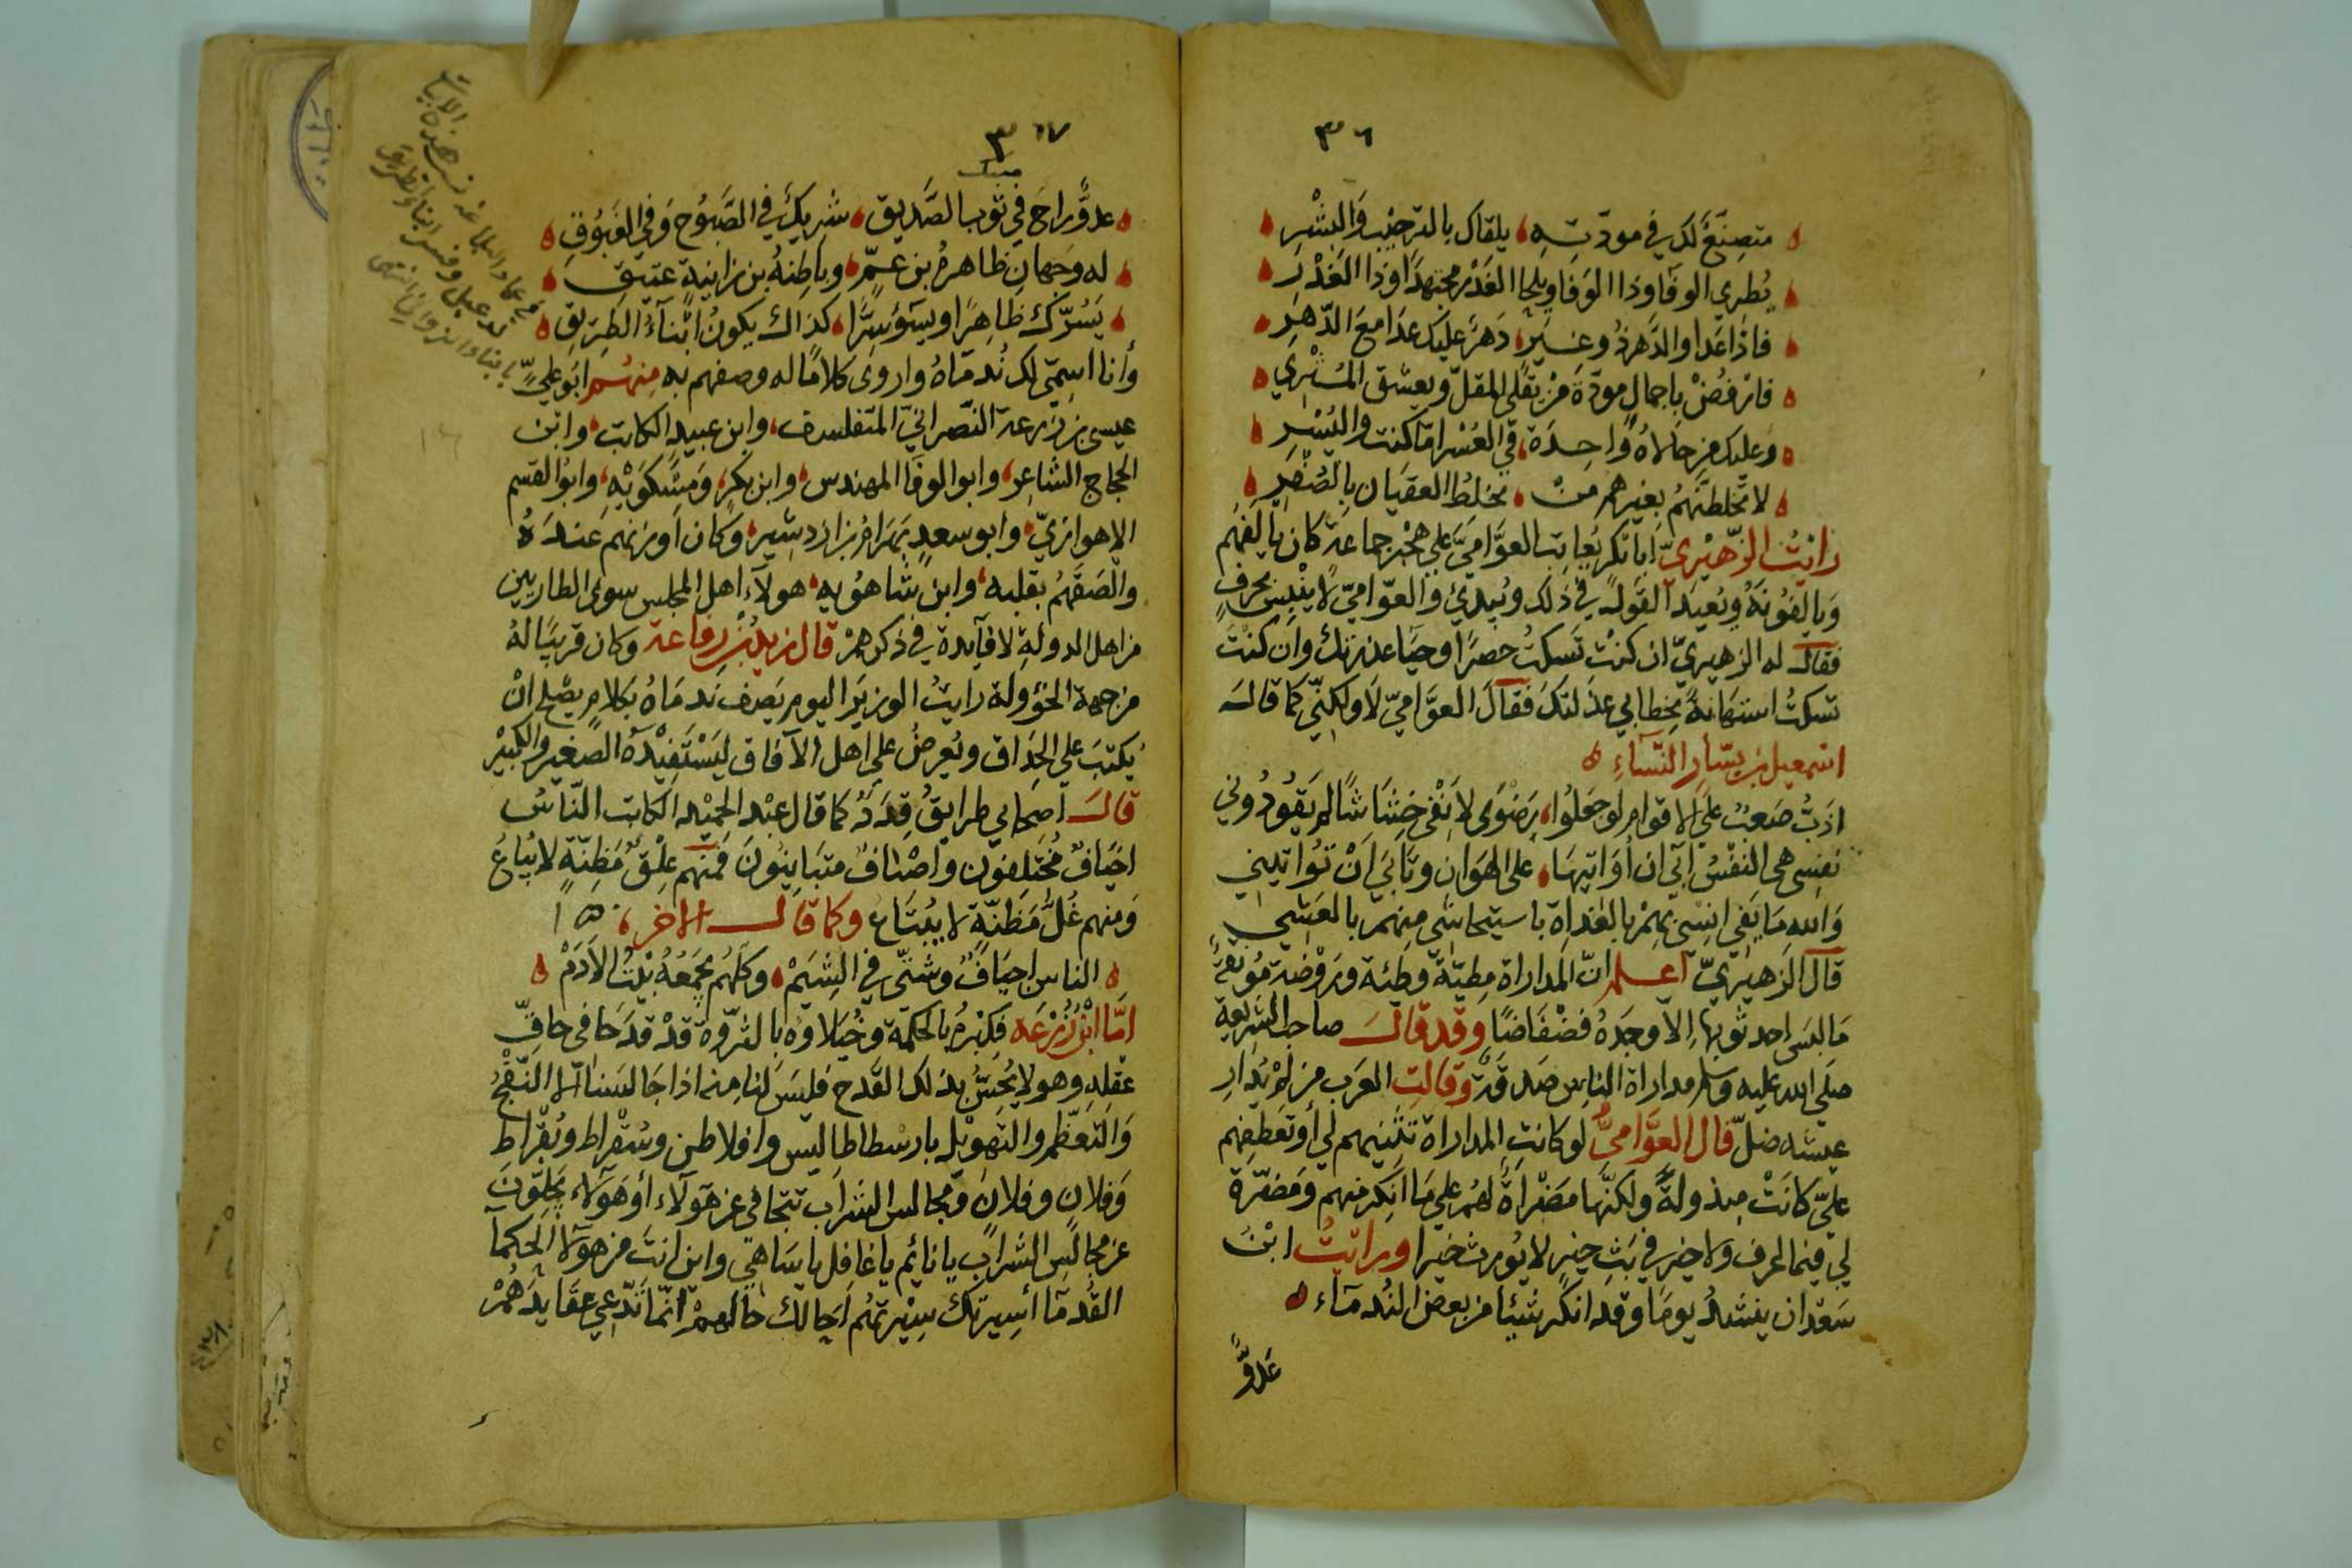 ٣٦
متصنّع لك في مودّته، يلقاك بالترحيب والبشر
يطري الوفا وذا الوفا ويلحا الغدر مجتهدا وذا الغدر
فاذا عدا والدهر ذو غير، دهر عليك عدا مع الدهر
فارفض باجمال مودة من يقلي المقلّ ويعشق المثري
وعليك من حالاه واحدة، في العسر اما كنت واليسر
لا تخلطنهم بغيرهم من، يخلط العقيان بالصفر
رايت الزهيريّ ابا بكر يعاتب العوّاميّ على هجر جماعة كان يالفهم
ويالفونه ويعيد القول في ذلك ويبدئ والعوّاميّ لا ينبس بحرف
فقال له الزهيريّ ان كنت تسكت حصرا وحيا عذرتك وان كنت
تسكت استهانة بخطابي عذلتك فقال العوّاميّ لا ولكنّي كما قال
اسمعيل بن يسار النساء
اذبّ صعب على الاقوام لو جعلوا، رضوى لانفي خشاشا لم يقودوني
نفسي هي النفس آبى ان أواتيها، على الهوان وتابى ان تواتيني
والله ما يفي انسي بهم بالغداة باستيحاشي منهم بالعشي
قال الزهيريّ اعلم انّ المداراة مطيّة وطئة وروضة مونقة
ما لبس احد ثوبها الا وجده فضفاضا وقد قال صاحب الشريعة
صلى الله عليه وسلم مداراة الناس صدقة وقالت العرب من لم يدار
عيشه ضلّ قال العوّاميّ لو كانت المداراة تثنيهم لي أو تعطفهم
عليّ كانت مبذولة ولكنها مضراة لهم على ما انكر منهم ومضرّة
لي فيما اعرف ولا خير في بث خير لا يورث خيرا ورايت ابن
سعدان ينشد يوما وقد انكر شيئا من بعض الندماء
عدوّ
٣٧
عدوّ راح في ثوب الصّديق، شريك في الصّبوح وفي الغبوق
له وجهان ظاهره بن عمّ، وباطنه بن زانية عتيق
يسرّك ظاهرا ويسوء سرّا، كذاك يكون ابناء الطريق
وأنا اسمّي لك ندماه واروي كلاما له وصفهم به منهم ابو عليّ
عيسى بن زرعة النّصرانيّ المتفلسف، وابن عبيد الكاتب، وابن
الحجاج الشاعر، وابو الوفا المهندس، وابن بكر، ومسكويه، وابو القسم
الاهوازيّ، وابو سعد بهرام بن اردشير، وكان اوزنهم عنده
والصقهم بقلبه، وابن شاهويه، هولاء اهل المجلس سوى الطاريين
من اهل الدولة لا فايدة في ذكرهم قال زيد بن رفاعة وكان قريبا له
من جهة الخؤولة رايت الوزير اليوم يصف ندماه بكلام يصلح ان
يكتب على الحداق ويعرض على اهل الآفاق ليستفيده الصغير والكبير
قال اصحابي طرايق قدد كما قال عبد الحميد الكاتب الناس
اخياف مختلفون واصناف متباينون فمنهم علق مظنّة لا يباع
ومنهم غلّ مظنّة لا يبتاع وكما قال الاخر،
الناس اخياف وشتّى في الشيم، وكلهم يجمعه بيت الادم
امّا ابن زرعه فكبره بالحكمة وخيلاوه بالثروة قد قدحا في حاقّ
عقله وهو لا يحسّ بذلك القدح فليس لنا منه اذا جالسنا الا النّفج
والتعظّم والتهويل بارسطاطاليس وافلاطن وسقراط وبقراط
وفلان وفلان ومجالس الشراب تتجافى عن هؤلاء أو هولاء يجلّون
عن مجالس الشراب يا نائم يا غافل يا ساهي واين انت من هولا الحكما
القدما أسيرتك سيرتهم احالك حالهم انّما تدّعي عقايدهم